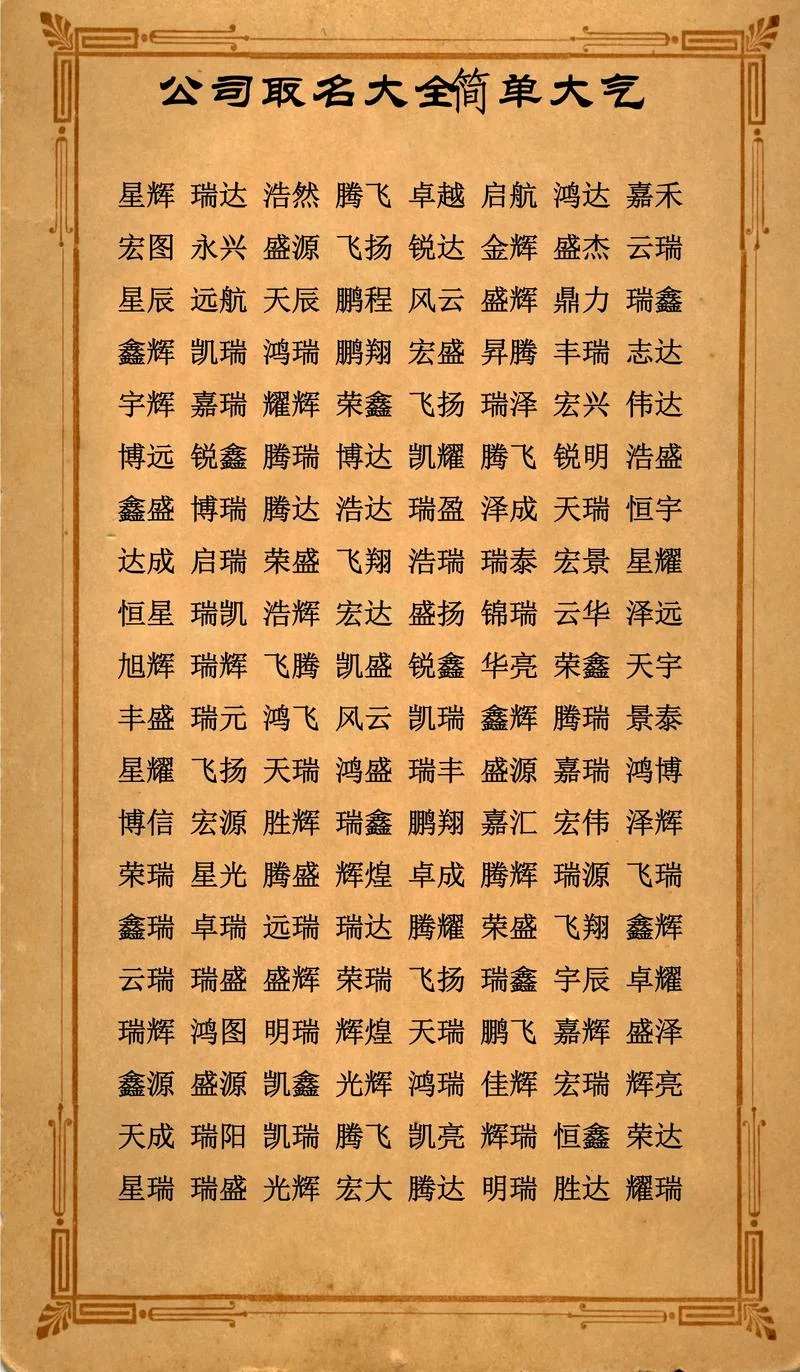 公司取名大全简单大气
星辉 瑞达 浩然 腾飞 卓越 启航 鸿达 嘉禾
宏图 永兴 盛源 飞扬 锐达 金辉 盛杰 云瑞
星辰 远航 天辰 鹏程 风云 盛辉 鼎力 瑞鑫
鑫辉 凯瑞 鸿瑞 鹏翔 宏盛 昇腾 丰瑞 志达
宇辉 嘉瑞 耀辉 荣鑫 飞扬 瑞泽 宏兴 伟达
博远 锐鑫 腾瑞 博达 凯耀 腾飞 锐明 浩盛
鑫盛 博瑞 腾达 浩达 瑞盈 泽成 天瑞 恒宇
达成 启瑞 荣盛 飞翔 浩瑞 瑞泰 宏景 星耀
恒星 瑞凯 浩辉 宏达 盛扬 锦瑞 云华 泽远
旭辉 瑞辉 飞腾 凯盛 锐鑫 华亮 荣鑫 天宇
丰盛 瑞元 鸿飞 风云 凯瑞 鑫辉 腾瑞 景泰
星耀 飞扬 天瑞 鸿盛 瑞丰 盛源 嘉瑞 鸿博
博信 宏源 胜辉 瑞鑫 鹏翔 嘉汇 宏伟 泽辉
荣瑞 星光 腾盛 辉煌 卓成 腾辉 瑞源 飞瑞
鑫瑞 卓瑞 远瑞 瑞达 腾耀 荣盛 飞翔 鑫辉
云瑞 瑞盛 盛辉 荣瑞 飞扬 瑞鑫 宇辰 卓耀
瑞辉 鸿图 明瑞 辉煌 天瑞 鹏飞 嘉辉 盛泽
鑫源 盛源 凯鑫 光辉 鸿瑞 佳辉 宏瑞 辉亮
天成 瑞阳 凯瑞 腾飞 凯亮 辉瑞 恒鑫 荣达
星瑞 瑞盛 光辉 宏大 腾达 明瑞 胜达 耀瑞